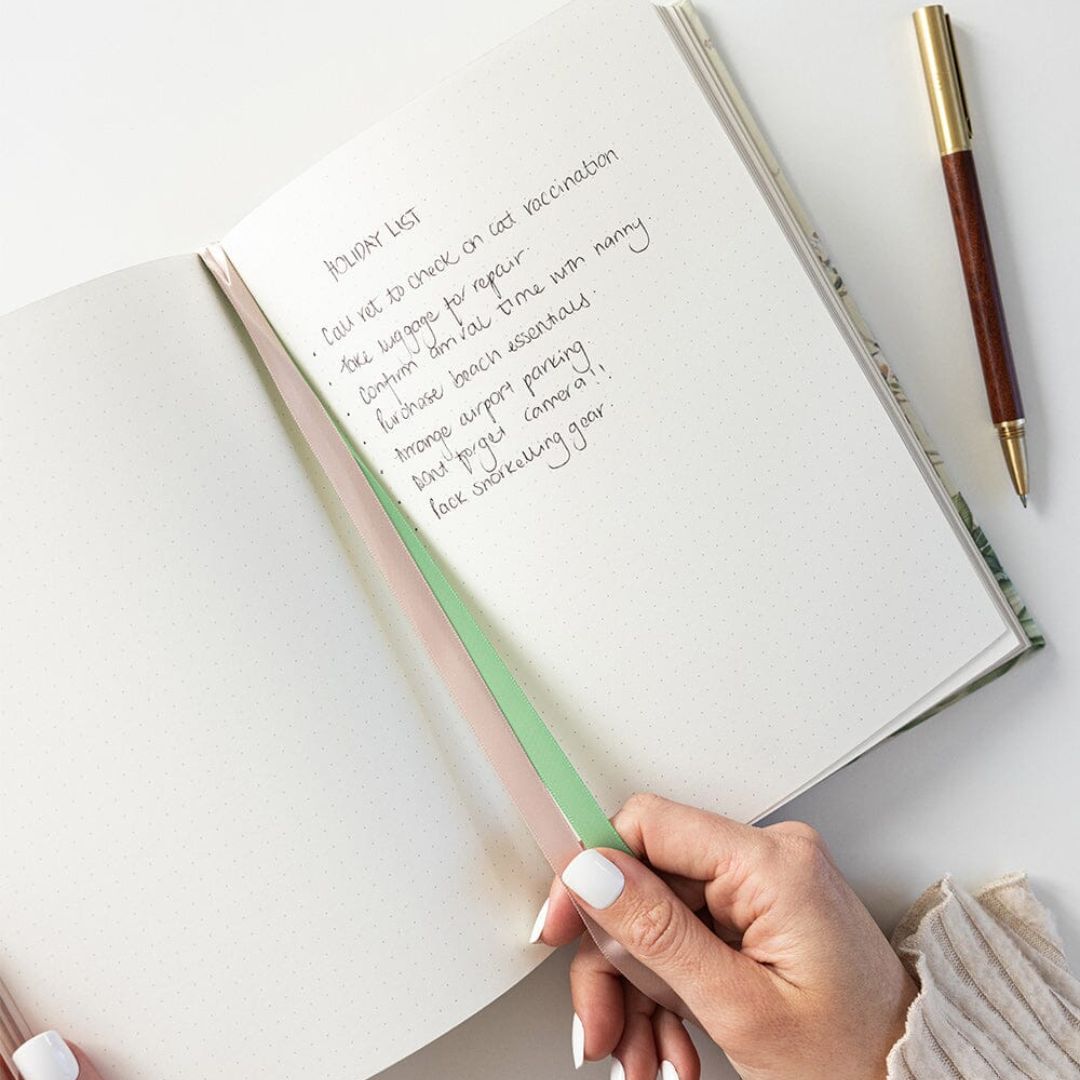 HOLIDAY LIST
• Call vet to check on cat vaccination
• Take luggage for repair
• Confirm arrival time with nanny.
• Purchase beach essentials.
• Arrange airport parking
• Dont forget camera!!
• Pack snorkelling gear.